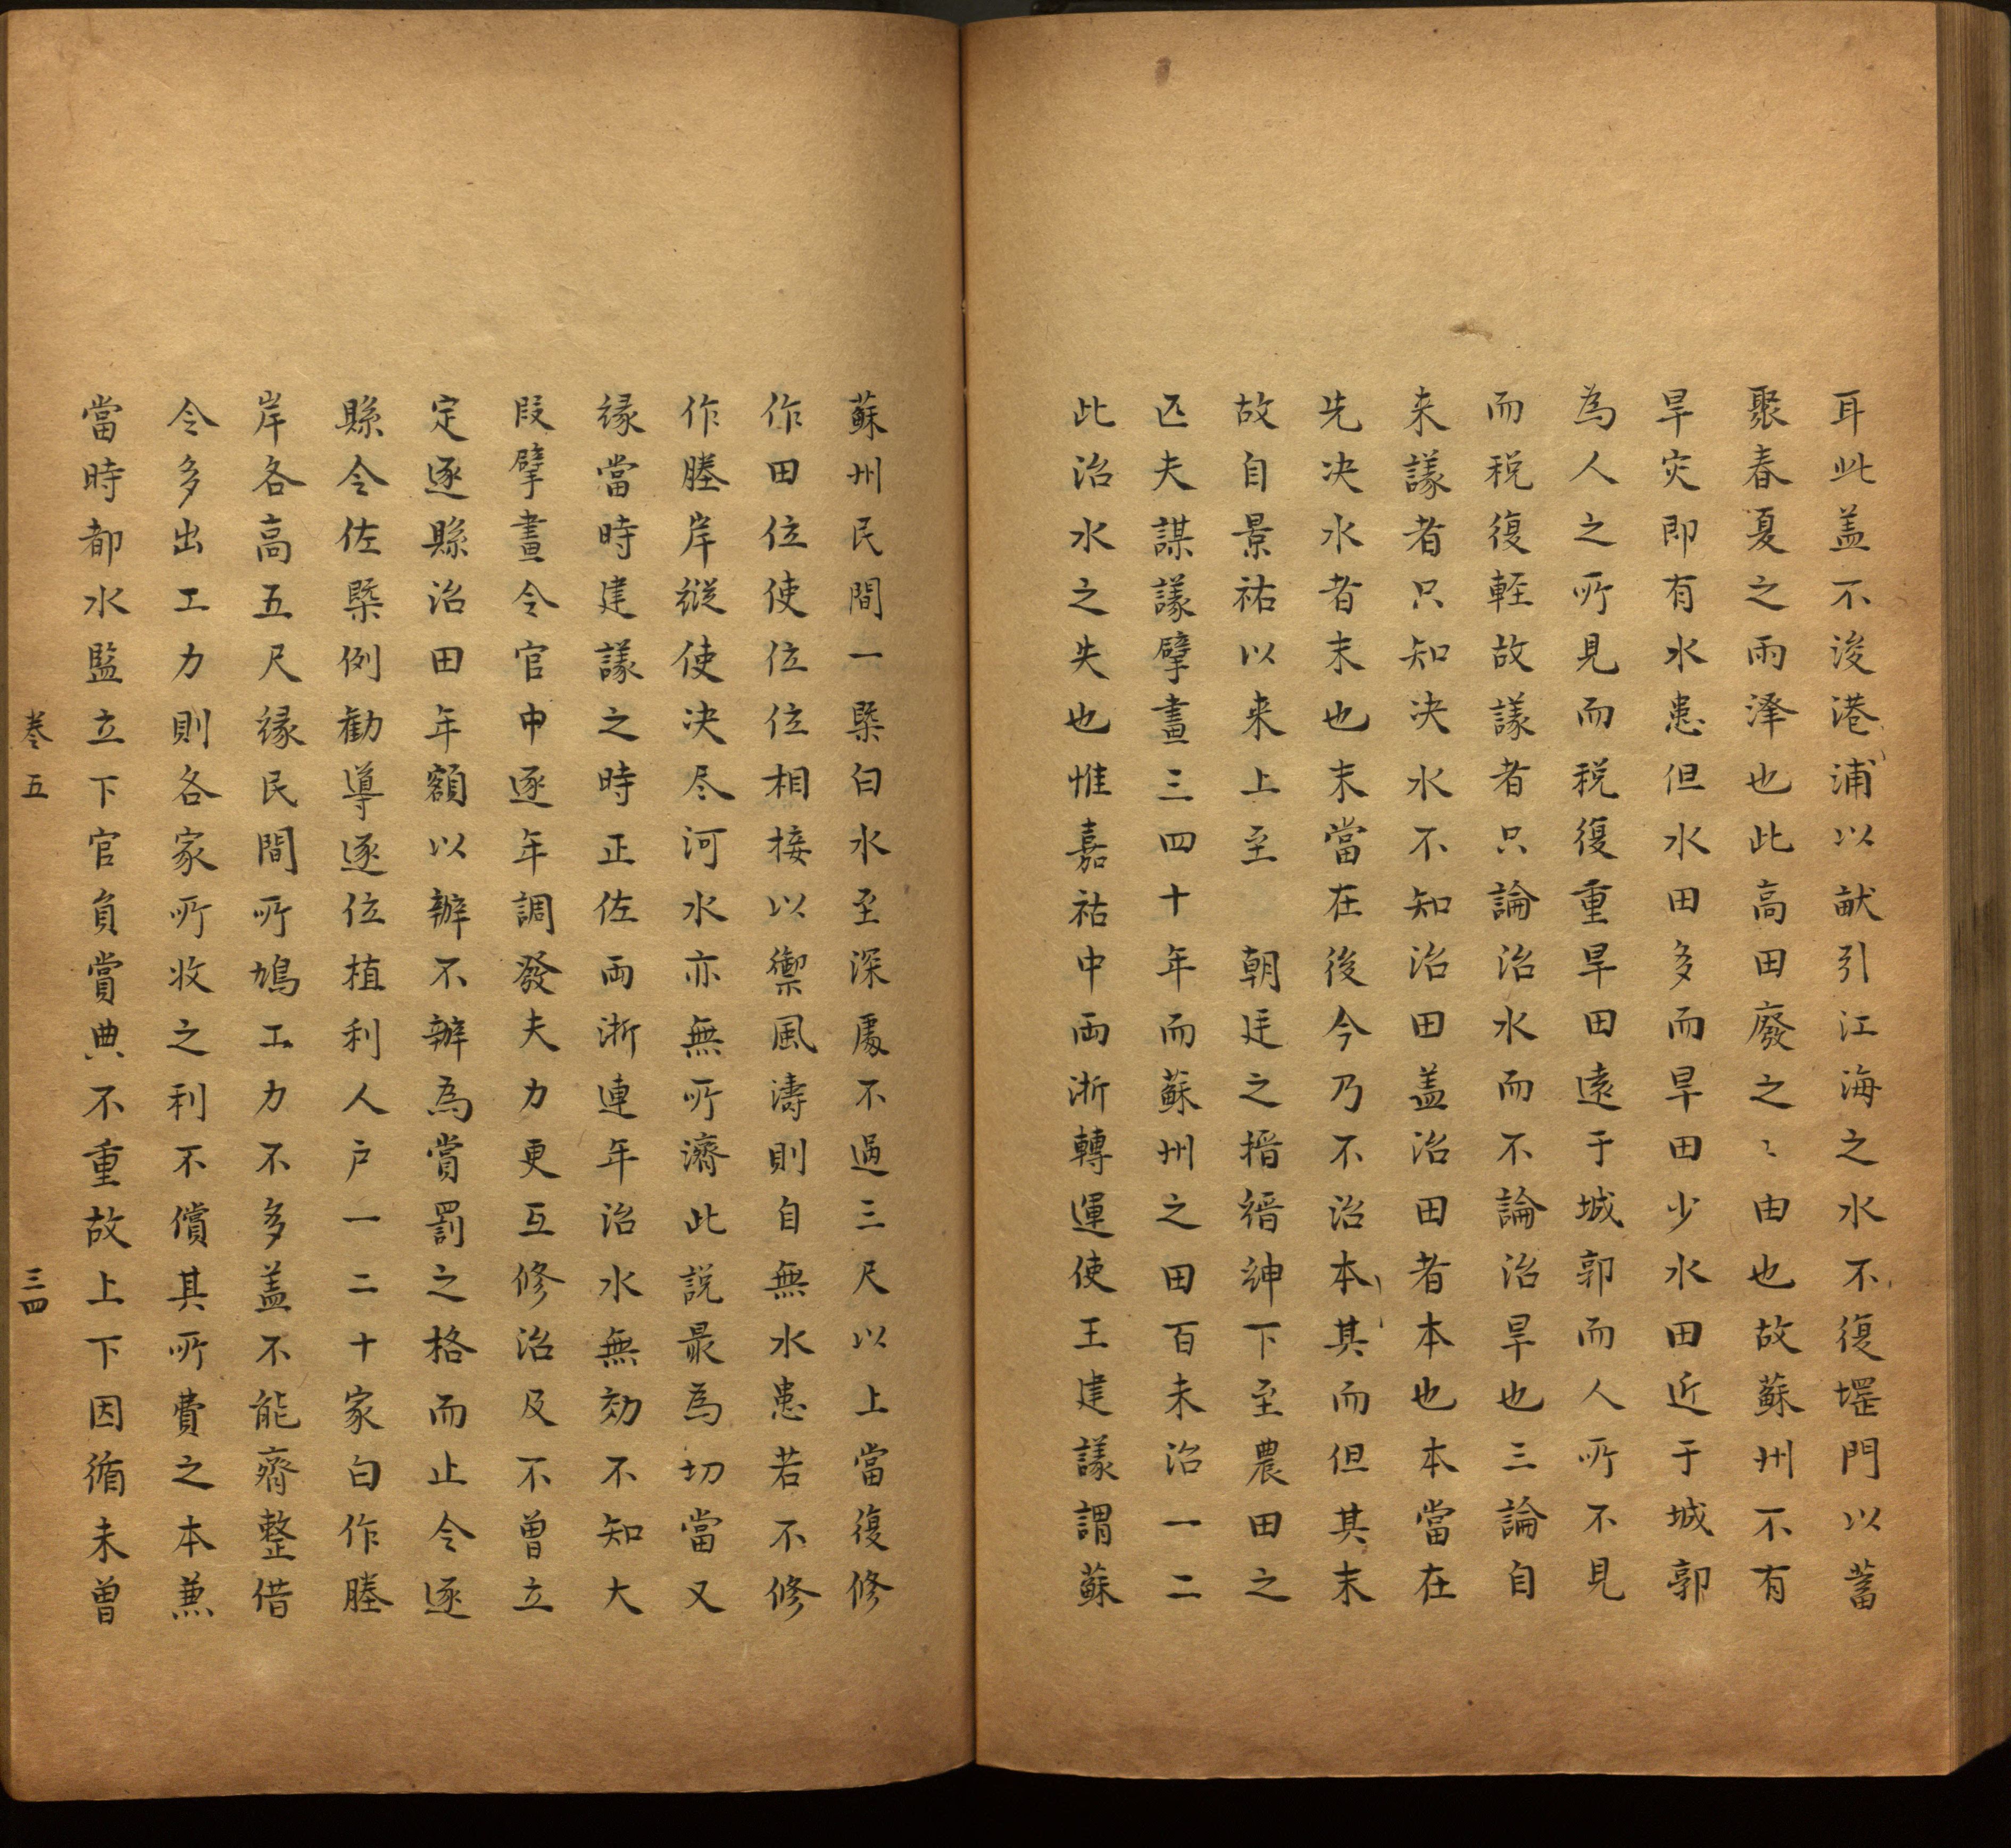 耳此盖不浚港浦以畎引江海之水不復堽門以蓄
聚春夏之雨泽也此髙田廢之〻由也故蘇州不有
旱灾即有水患但水田多而旱田少水田近于城郭
為人之所見而税復重旱田遠于城郭而人所不見
而税復軽故議者只論治水而不論治旱也三論自
来議者只知决水不知治田盖治田者本也本當在
先决水者末也末當在後今乃不治本其而但其末
故自景祐以来上至 朝廷之搢縉紳下至農田之
匹夫謀議擘畫三四十年而蘇州之田百未治一二
此治水之失也惟嘉祐中両浙轉運使王建議謂蘇
蘇州民間一槩白水至深處不過三尺以上當復修
作田位使位位相接以禦風濤則自無水患若不修
作塍岸縱使决尽河水亦無所濟此説最為切當又
縁當時建議之時正佐両浙連年治水無効不知大
段擘畫令官中逐年調發夫力更互修治及不曾立
定逐縣治田年額以辦不辦為賞罰之格而止令逐
縣令佐槩例勸導逐位植利人户一二十家白作塍
岸各高五尺縁民間所鳩工力不多盖不能齊整借
令多出工力則各家所收之利不償其所費之本兼
當時都水監立下官負賞典不重故上下因循未曾
巻五 三四